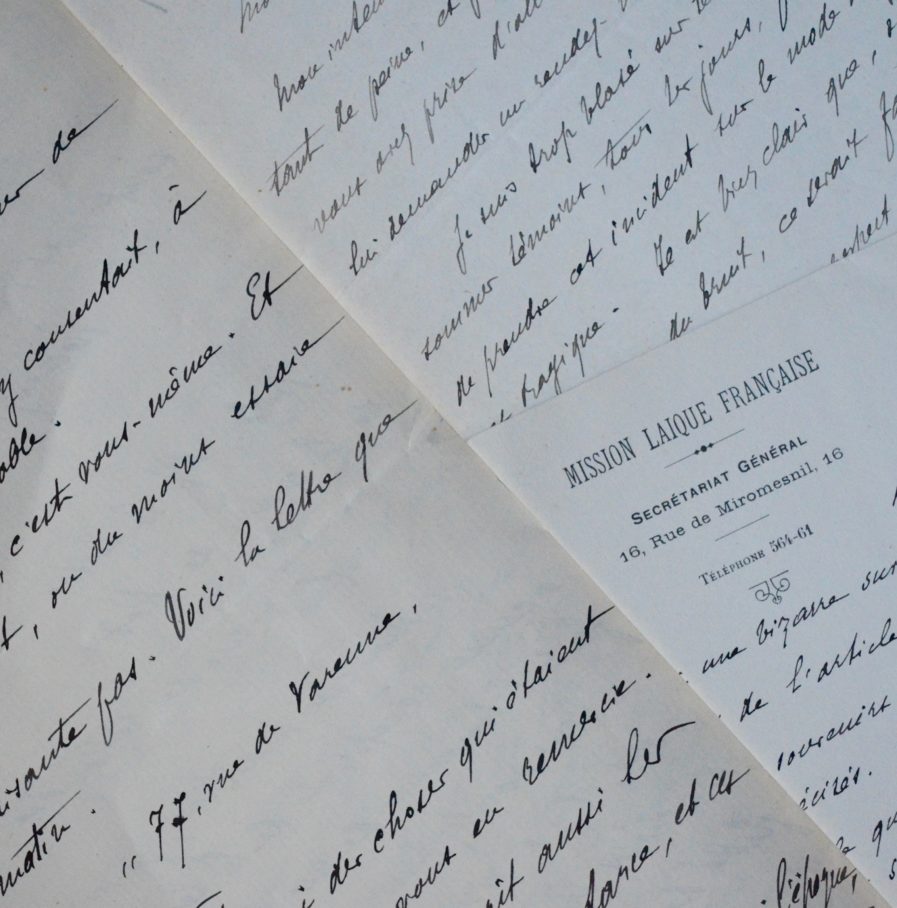 de
y consentait, à
c'est vous-même. Et
t, ou du moins essaie
pas. Voici la lettre que
matin.
" 77, rue de Varenne,
des choses qui étaient
vous en remercie.
aussi les
farce, et ces
Mon
tant de peine, et
vous avez prise d'all
lui demander un rendez-
Je suis trop blasé sur
sommes témoins, tous les jours,
de prendre cet incident sur le mode
tragique. Il est bien clair que,
du bruit, ce serait
MISSION LAIQUE FRANÇAISE
SECRÉTARIAT GÉNÉRAL
16, Rue de Miromesnil, 16
TÉLÉPHONE 564-61
une bizarre sur
de l'article
souvenirs
l'époque,